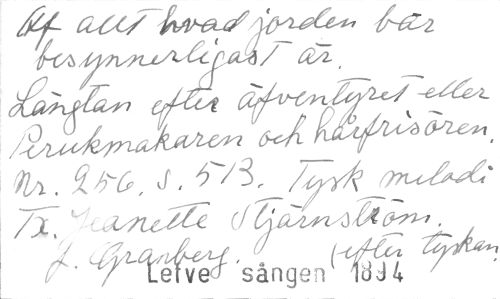 Af allt hvad jorden bär
besynnerligast är.
Längtan efter äfventyret eller
Perukmakaren och hårfrisören.
Nr. 256. s. 513. Tysk melodi
Tx. Jeanette Stjärnström.
J. Granberg. (efter tyskan.
Lefve sången 1894